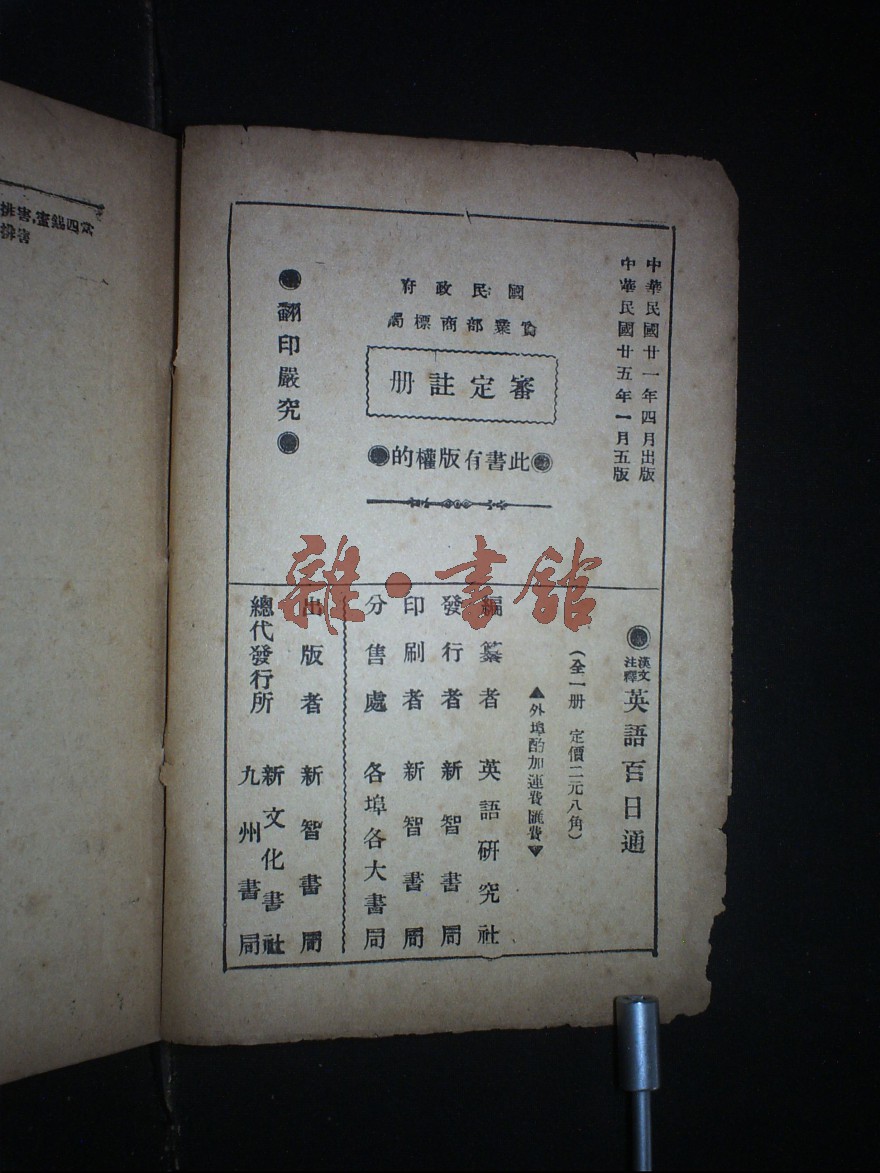 中華民國廿一年四月出版
中華民國廿五年一月五版
國民政府
實業部商標局
審定註冊
此書有版權的
翻印嚴究
漢文注釋 英語百日通
（全一冊 定價二元八角）
▲外埠酌加運費匯費▼
編纂者 英語研究社
發行者 新智書局
印刷者 新智書局
分售處 各埠各大書局
出版者 新智書局
總代發行所 新文化書社
九州書局
雜·書館